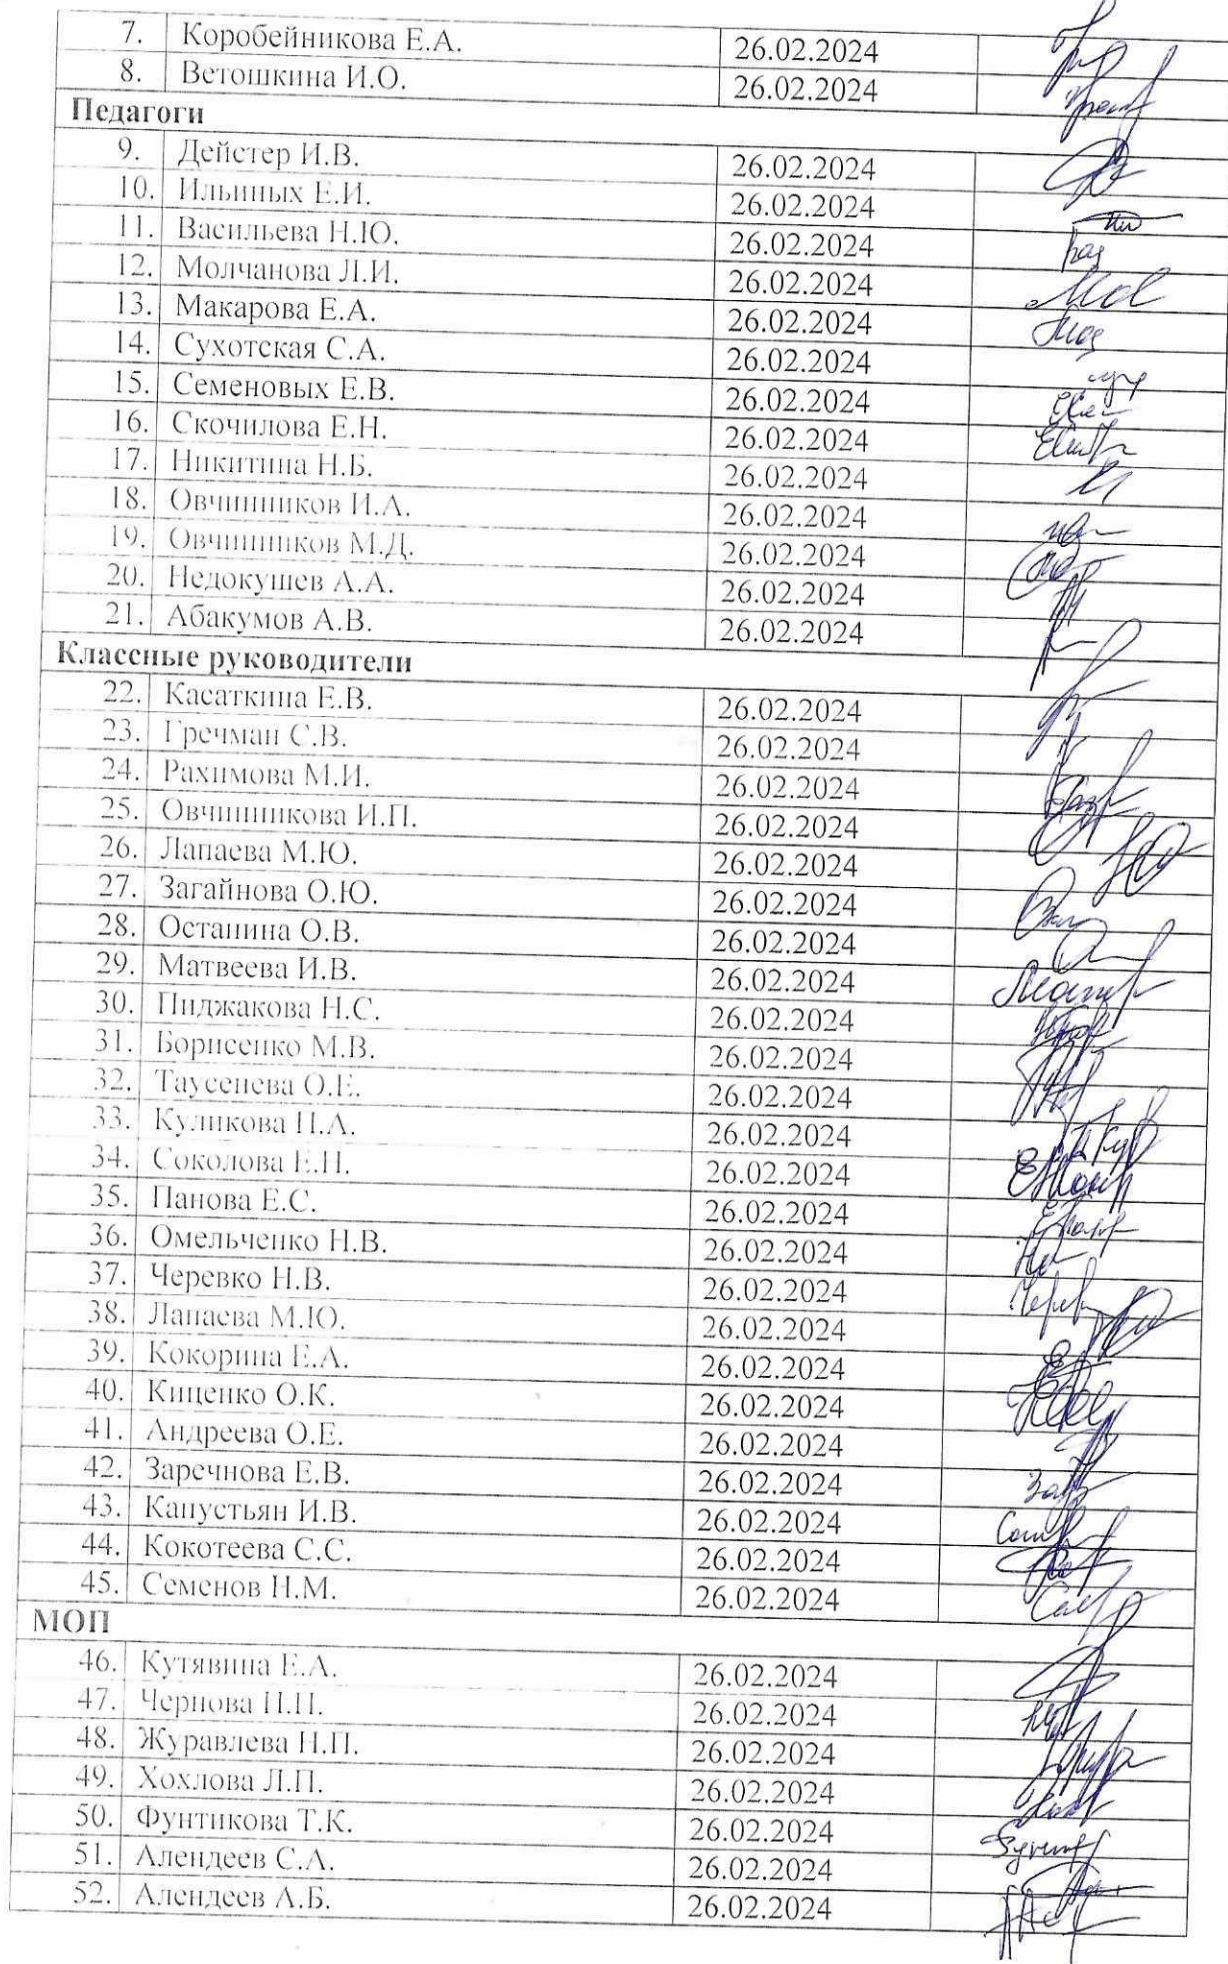 7. Коробейникова Е.А. 26.02.2024
8. Ветошкина И.О. 26.02.2024
Педагоги
9. Дейстер И.В. 26.02.2024
10. Ильиных Е.И. 26.02.2024
11. Васильева Н.Ю. 26.02.2024
12. Молчанова Л.И. 26.02.2024
13. Макарова Е.А. 26.02.2024
14. Сухотская С.А. 26.02.2024
15. Семеновых Е.В. 26.02.2024
16. Скочилова Е.Н. 26.02.2024
17. Никитина Н.Б. 26.02.2024
18. Овчинников И.А. 26.02.2024
19. Овчинников М.Д. 26.02.2024
20. Недокушев А.А. 26.02.2024
21. Абакумов А.В. 26.02.2024
Классные руководители
22. Касаткина Е.В. 26.02.2024
23. Гречман С.В. 26.02.2024
24. Рахимова М.И. 26.02.2024
25. Овчинникова И.П. 26.02.2024
26. Лапаева М.Ю. 26.02.2024
27. Загайнова О.Ю. 26.02.2024
28. Останина О.В. 26.02.2024
29. Матвеева И.В. 26.02.2024
30. Пиджакова Н.С. 26.02.2024
31. Борисенко М.В. 26.02.2024
32. Таусенева О.Е. 26.02.2024
33. Куликова 26.02.2024
34. Соколова Е.Н. 26.02.2024
35. Панова Е.С. 26.02.2024
36. Омельченко Н.В. 26.02.2024
37. Черевко Н.В. 26.02.2024
38. Лапаева М.Ю. 26.02.2024
39. Кокорина Е.А. 26.02.2024
40. Киценко О.К. 26.02.2024
41. Андреева О.Е. 26.02.2024
42. Заречнова Е.В. 26.02.2024
43. Капустьян И.В. 26.02.2024
44. Кокотеева С.С. 26.02.2024
45. Семенов Н.М. 26.02.2024
МОП
46. Кутявина Е.А. 26.02.2024
47. Чернова 26.02.2024
48. Журавлева Н.П. 26.02.2024
49. Хохлова Л.П. 26.02.2024
50. Фунтикова Т.К. 26.02.2024
51. Алендеев С.А. 26.02.2024
52. Алендеев А.Б. 26.02.2024